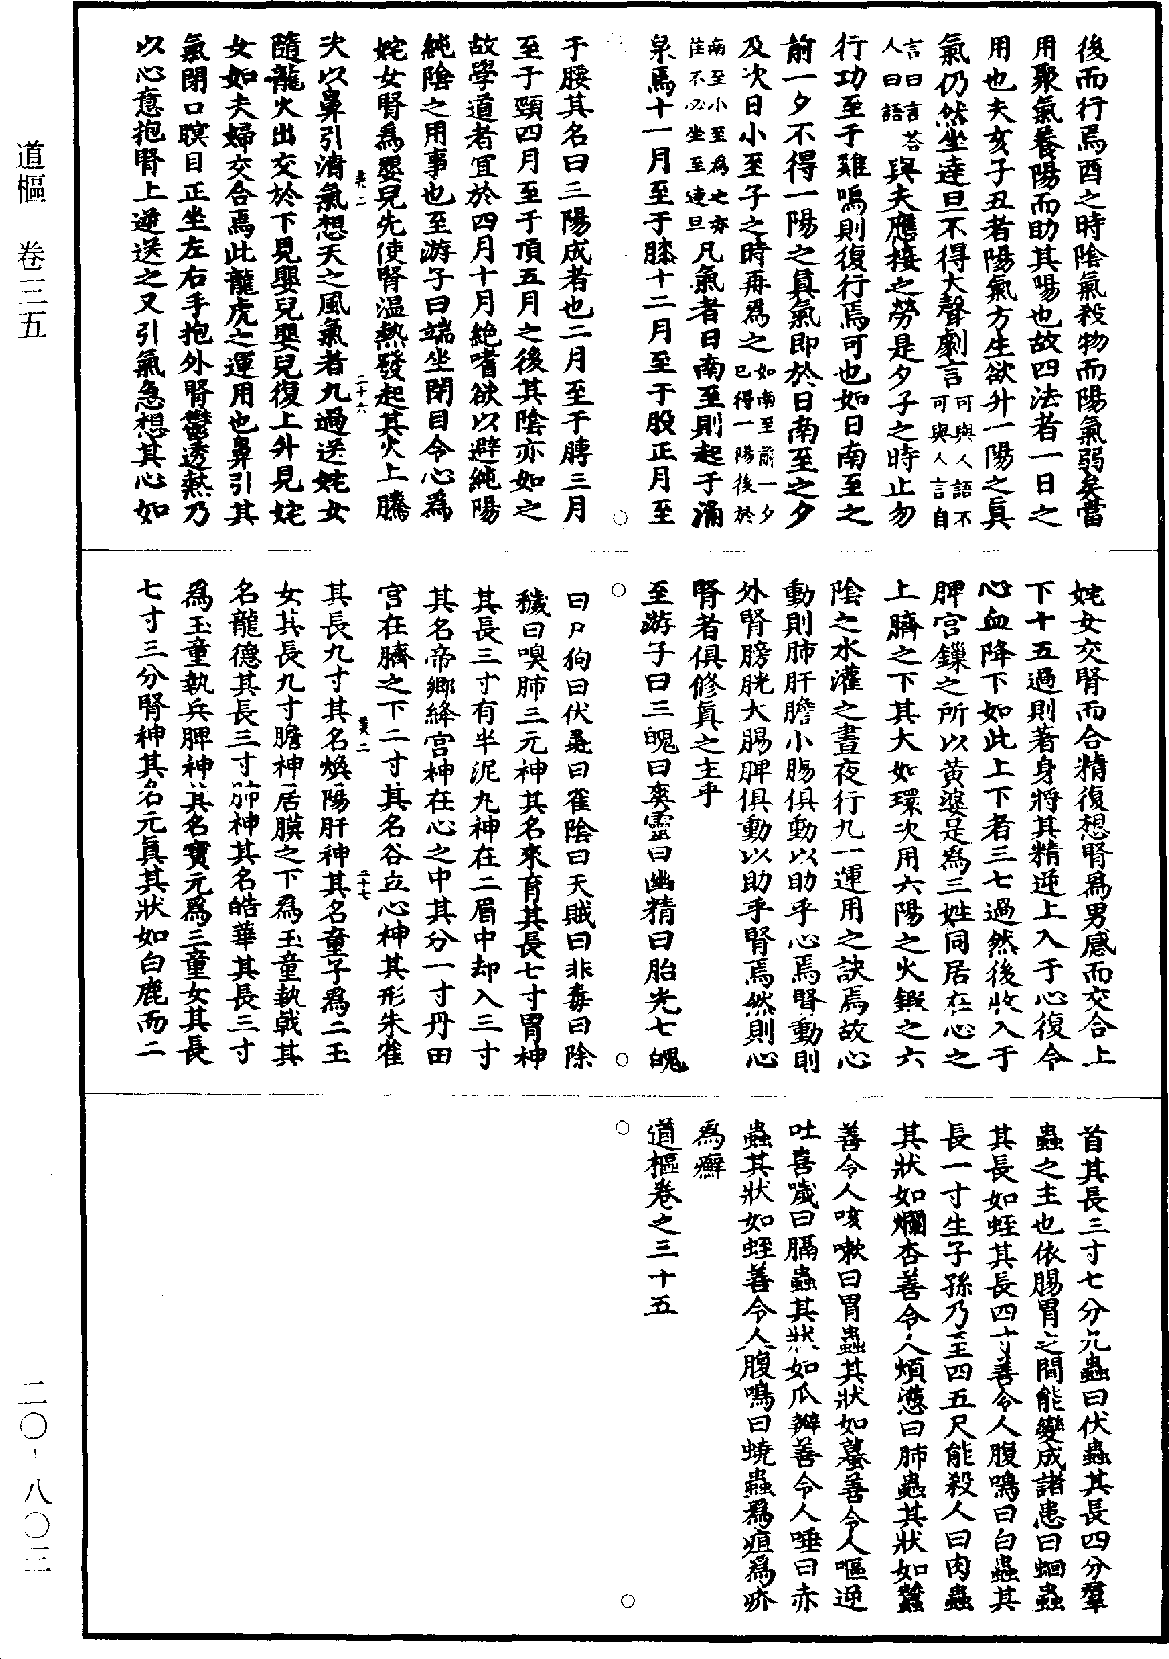 後而行焉酉之時陰氣殺物而陽氣弱矣當
用聚氣養陽而助其陽也故四法者一日之
用也夫亥子丑者陽氣方生欲升一陽之真
氣仍然坐達旦不得大聲劇言可與人語不可與人言自
言曰言答人曰語與夫應接之勞是夕子之時止勿
行功至于雞鳴則復行焉可也如日南至之
前一夕不得一陽之真氣即於日南至之夕
及次日小至子之時再爲之如南至前一夕已得一陽後於
南至小至爲之亦往不必坐至達旦凡氣者日南至則起于涌
泉焉十一月至于膝十二月至于股正月至
于腰其名曰三陽成者也二月至于膊三月
至于頸四月至于頂五月之後其陰亦如之
故學道者宜於四月十月絶嗜欲以避純陽
純陰之用事也至游子曰端坐閉目令心爲
姹女腎爲嬰兒先使腎温熱發起其火上騰
次以鼻引清氣想天之風氣者九過送姹女
隨龍火出交於下見嬰兒嬰兒復上升見姹
女如夫婦交合焉此龍虎之運用也鼻引其
氣閉口瞑目正坐左右手抱外腎鬱透熱乃
以心意抱腎上逆送之又引氣急想其心如
姹女交腎而合精復想腎爲男感而交合上
下十五過則著身將其精逆上入于心復令
心血降下如此上下者三七過然後收入于
脾宮鏁之所以黃婆是爲三姓同居在心之
上臍之下其大如環次用六陽之火鍛之六
陰之水灌之晝夜行九一運用之訣焉故心
動則肺肝膽小腸俱動以助乎心焉腎動則
外腎膀胱大腸脾俱動以助乎腎焉然則心
腎者俱修真之主乎
至游子曰三魄曰爽靈曰幽精曰胎光七魄
曰尸狗曰伏矢曰雀陰曰天賊曰非毒曰除
穢曰嗅肺三元神其名來育其長七寸胃神
其長三寸有半泥丸神在二眉中却入三寸
其名帝鄉絳宮神在心之中其分一寸丹田
宮在臍之下二寸其名谷玄心神其形朱雀
其長九寸其名煥陽肝神其名童子爲二玉
女其長九寸膽神居膜之下爲玉童執戟其
名龍德其長三寸肺神其名皓華其長三寸
爲玉童執兵脾神其名寶元爲三童女其長
七寸三分腎神其名元真其狀如白鹿而二
首其長三寸七分九蟲曰伏蟲其長四分羣
蟲之主也依腸胃之間能變成諸患曰蛔蟲
其長如蛭其長四寸善令人腹鳴曰白蟲其
長一寸生子孫乃至四五尺能殺人曰肉蟲
其狀如爛杏善令人煩懣曰肺蟲其狀如蠶
善令人咳嗽曰胃蟲其狀如蟇善令人嘔逆
吐喜噦曰膈蟲其狀如瓜瓣善令人唾曰赤
蟲其狀如蛭善令人腹鳴曰蟯蟲爲疽爲疥
爲癬
道樞卷之三十五
道樞　卷三五
二〇-八〇三
美二
二十六
美二
二十七